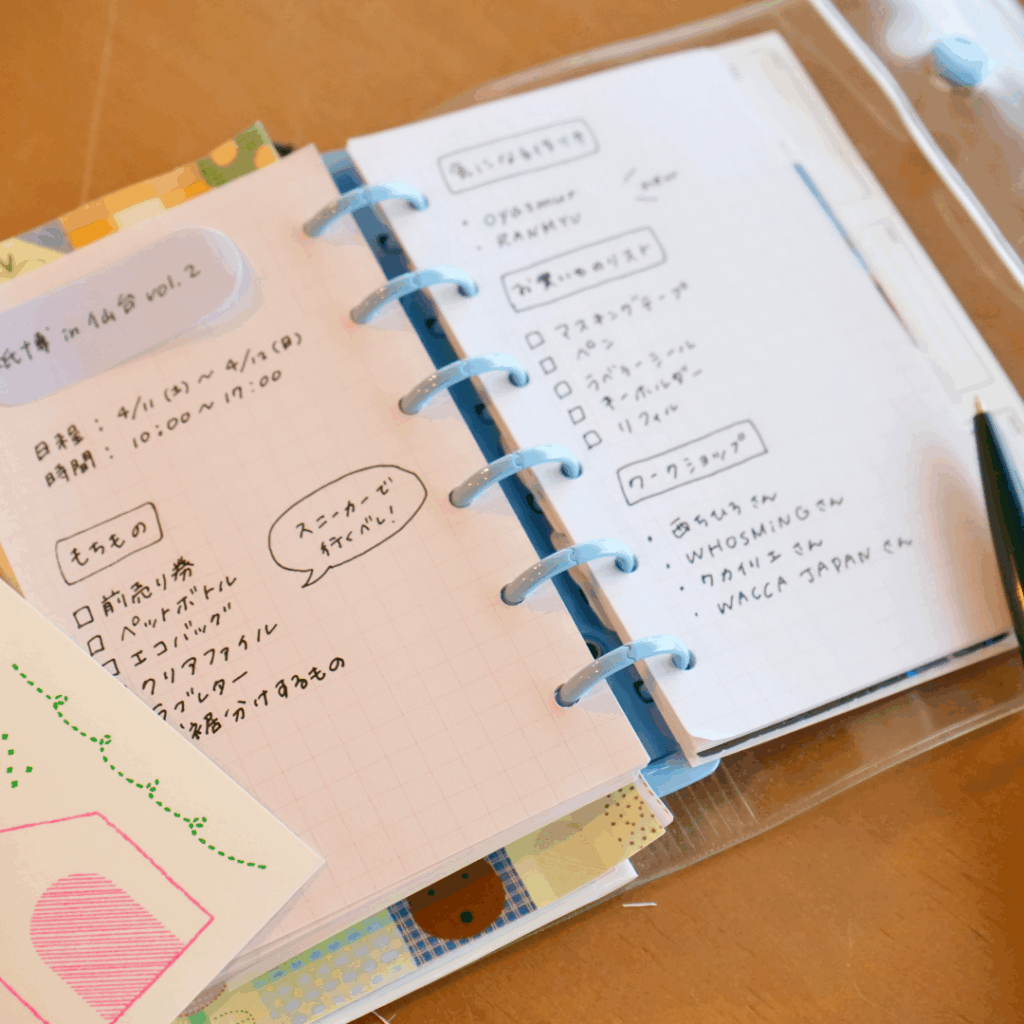 紙博 in 仙台 vol.2
日程： 4/11（土）～ 4/12（日）
時間： 10:00～17:00
もちもの
スニーカーで
行くべし！
前売り券
ペットボトル
エコバッグ
クリアファイル
ラブレター
裾分けするもの
気になる
oyasmur
new
RANMYU
お買いものリスト
マスキングテープ
ペン
ラベラーシール
キーホルダー
リフィル
ワークショップ
・西ちひろさん
・WHOSMiNGさん
・ワカイリエさん
・WACCA JAPANさん